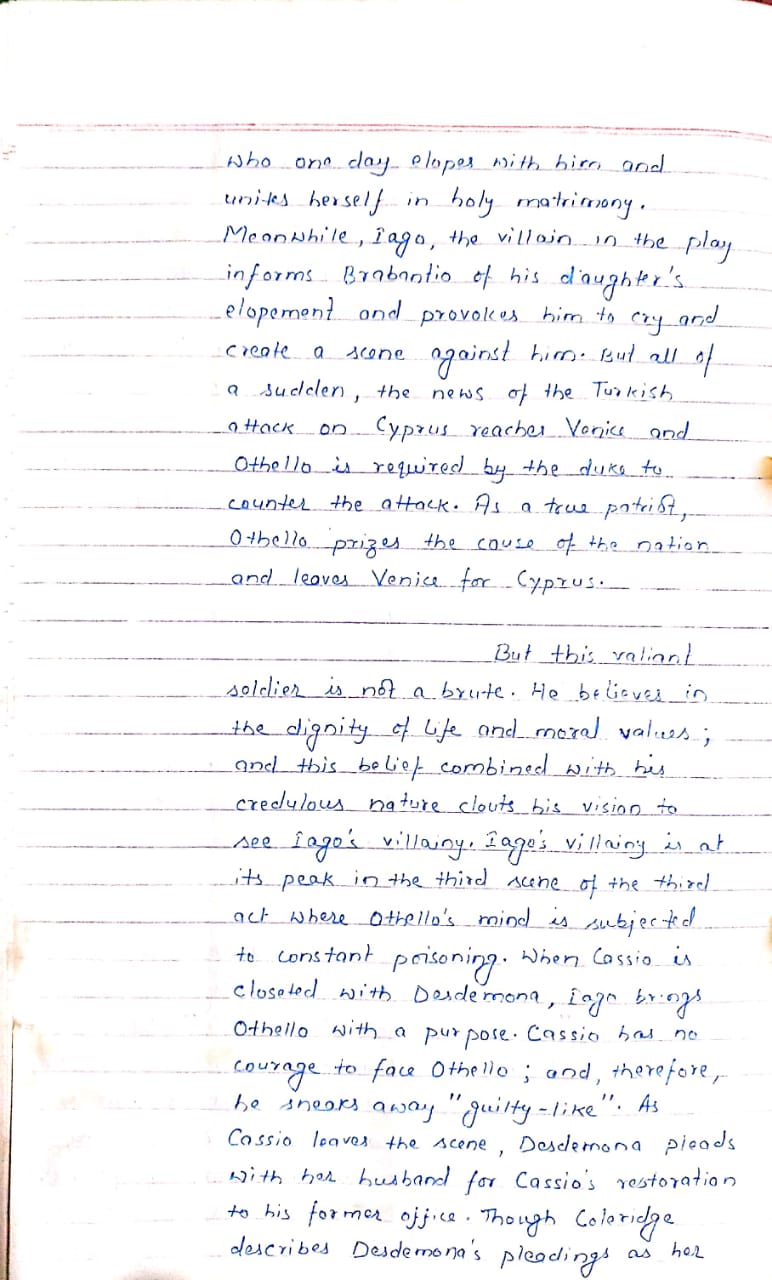 who one day elopes with him and
unites herself in holy matrimony.
Meanwhile, Iago, the villain in the play
informs Brabantio of his daughter's
elopement and provokes him to cry and
create a scene against him. But all of
a sudden, the news of the Turkish
attack on Cyprus reaches Venice and
Othello is required by the duke to
counter the attack. As a true patriot,
Othello prizes the cause of the nation
and leaves Venice for Cyprus.
But this valiant
soldier is not a brute. He believes in
the dignity of life and moral values;
and this belief combined with his
credulous nature clouts his vision to
see Iago's villainy. Iago's villainy is at
its peak in the third scene of the third
act where Othello's mind is subjected
to constant poisoning. When Cassio is
closeted with Desdemona, Iago brings
Othello with a purpose. Cassio has no
courage to face Othello; and, therefore,
he sneaks away "guilty-like". As
Cassio leaves the scene, Desdemona pleads
with her husband for Cassio's restoration
to his former office. Though Coleridge
describes Desdemona's pleadings as her